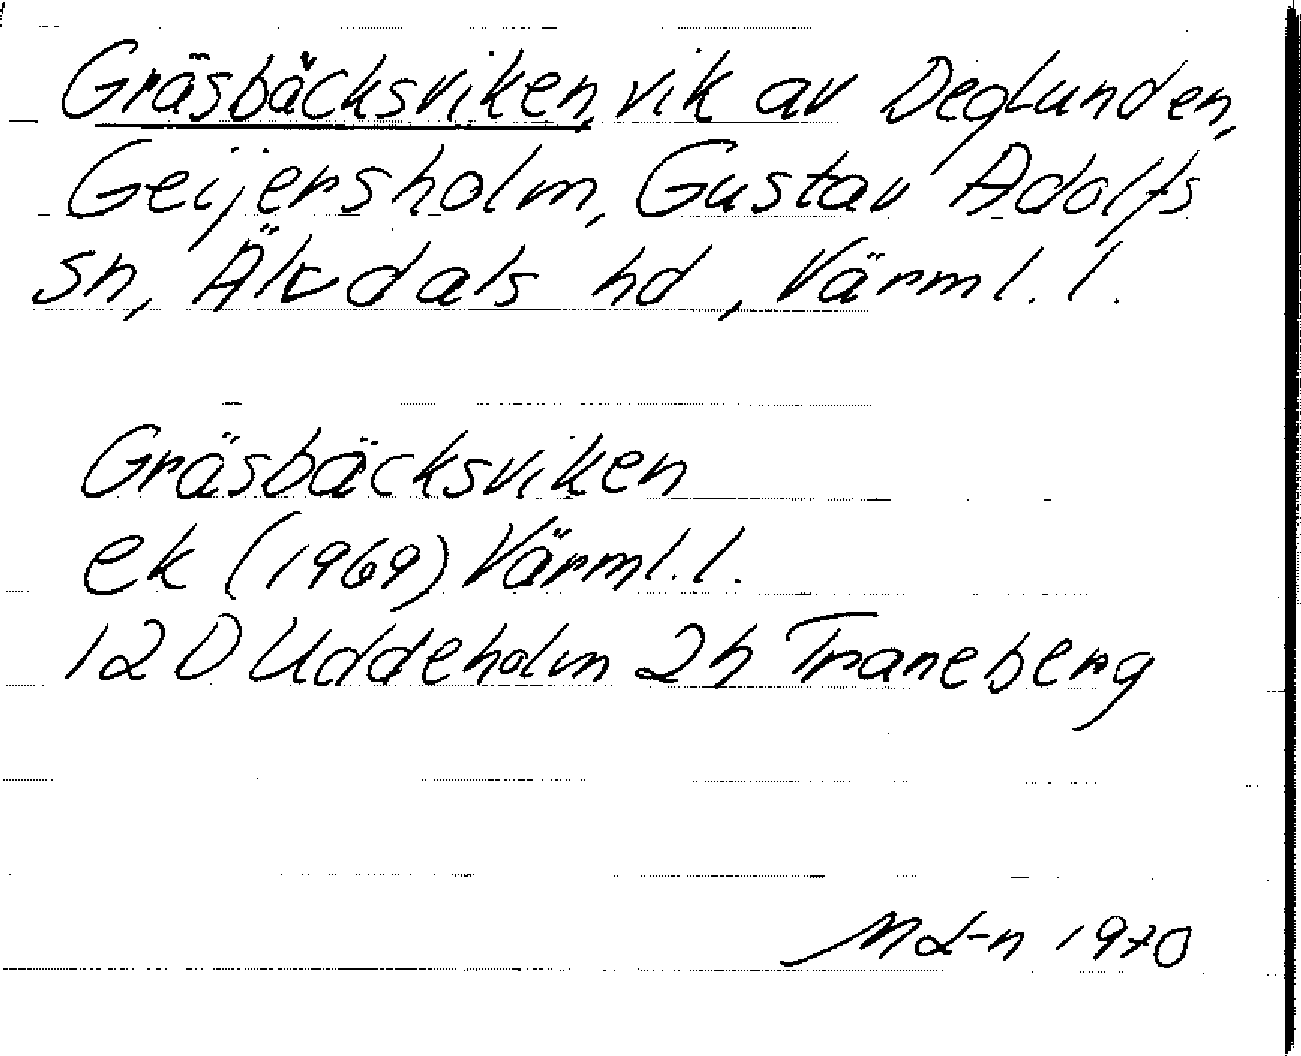 Gräsbäcksviken, vik av Deglunden,
Geijersholm, Gustav Adolfs
sn, Älvdals hd, Värml. l.
Gräsbäcksviken
ek (1969) Värml. l.
12 D Uddeholm 2h Traneberg
1970